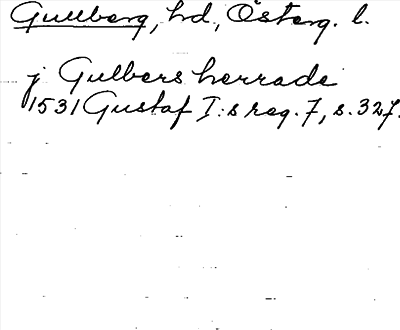 Gullberg, hd., Österg. l.
j Gulbers herrade
1531 Gustaf I:s reg. 7, s. 327.